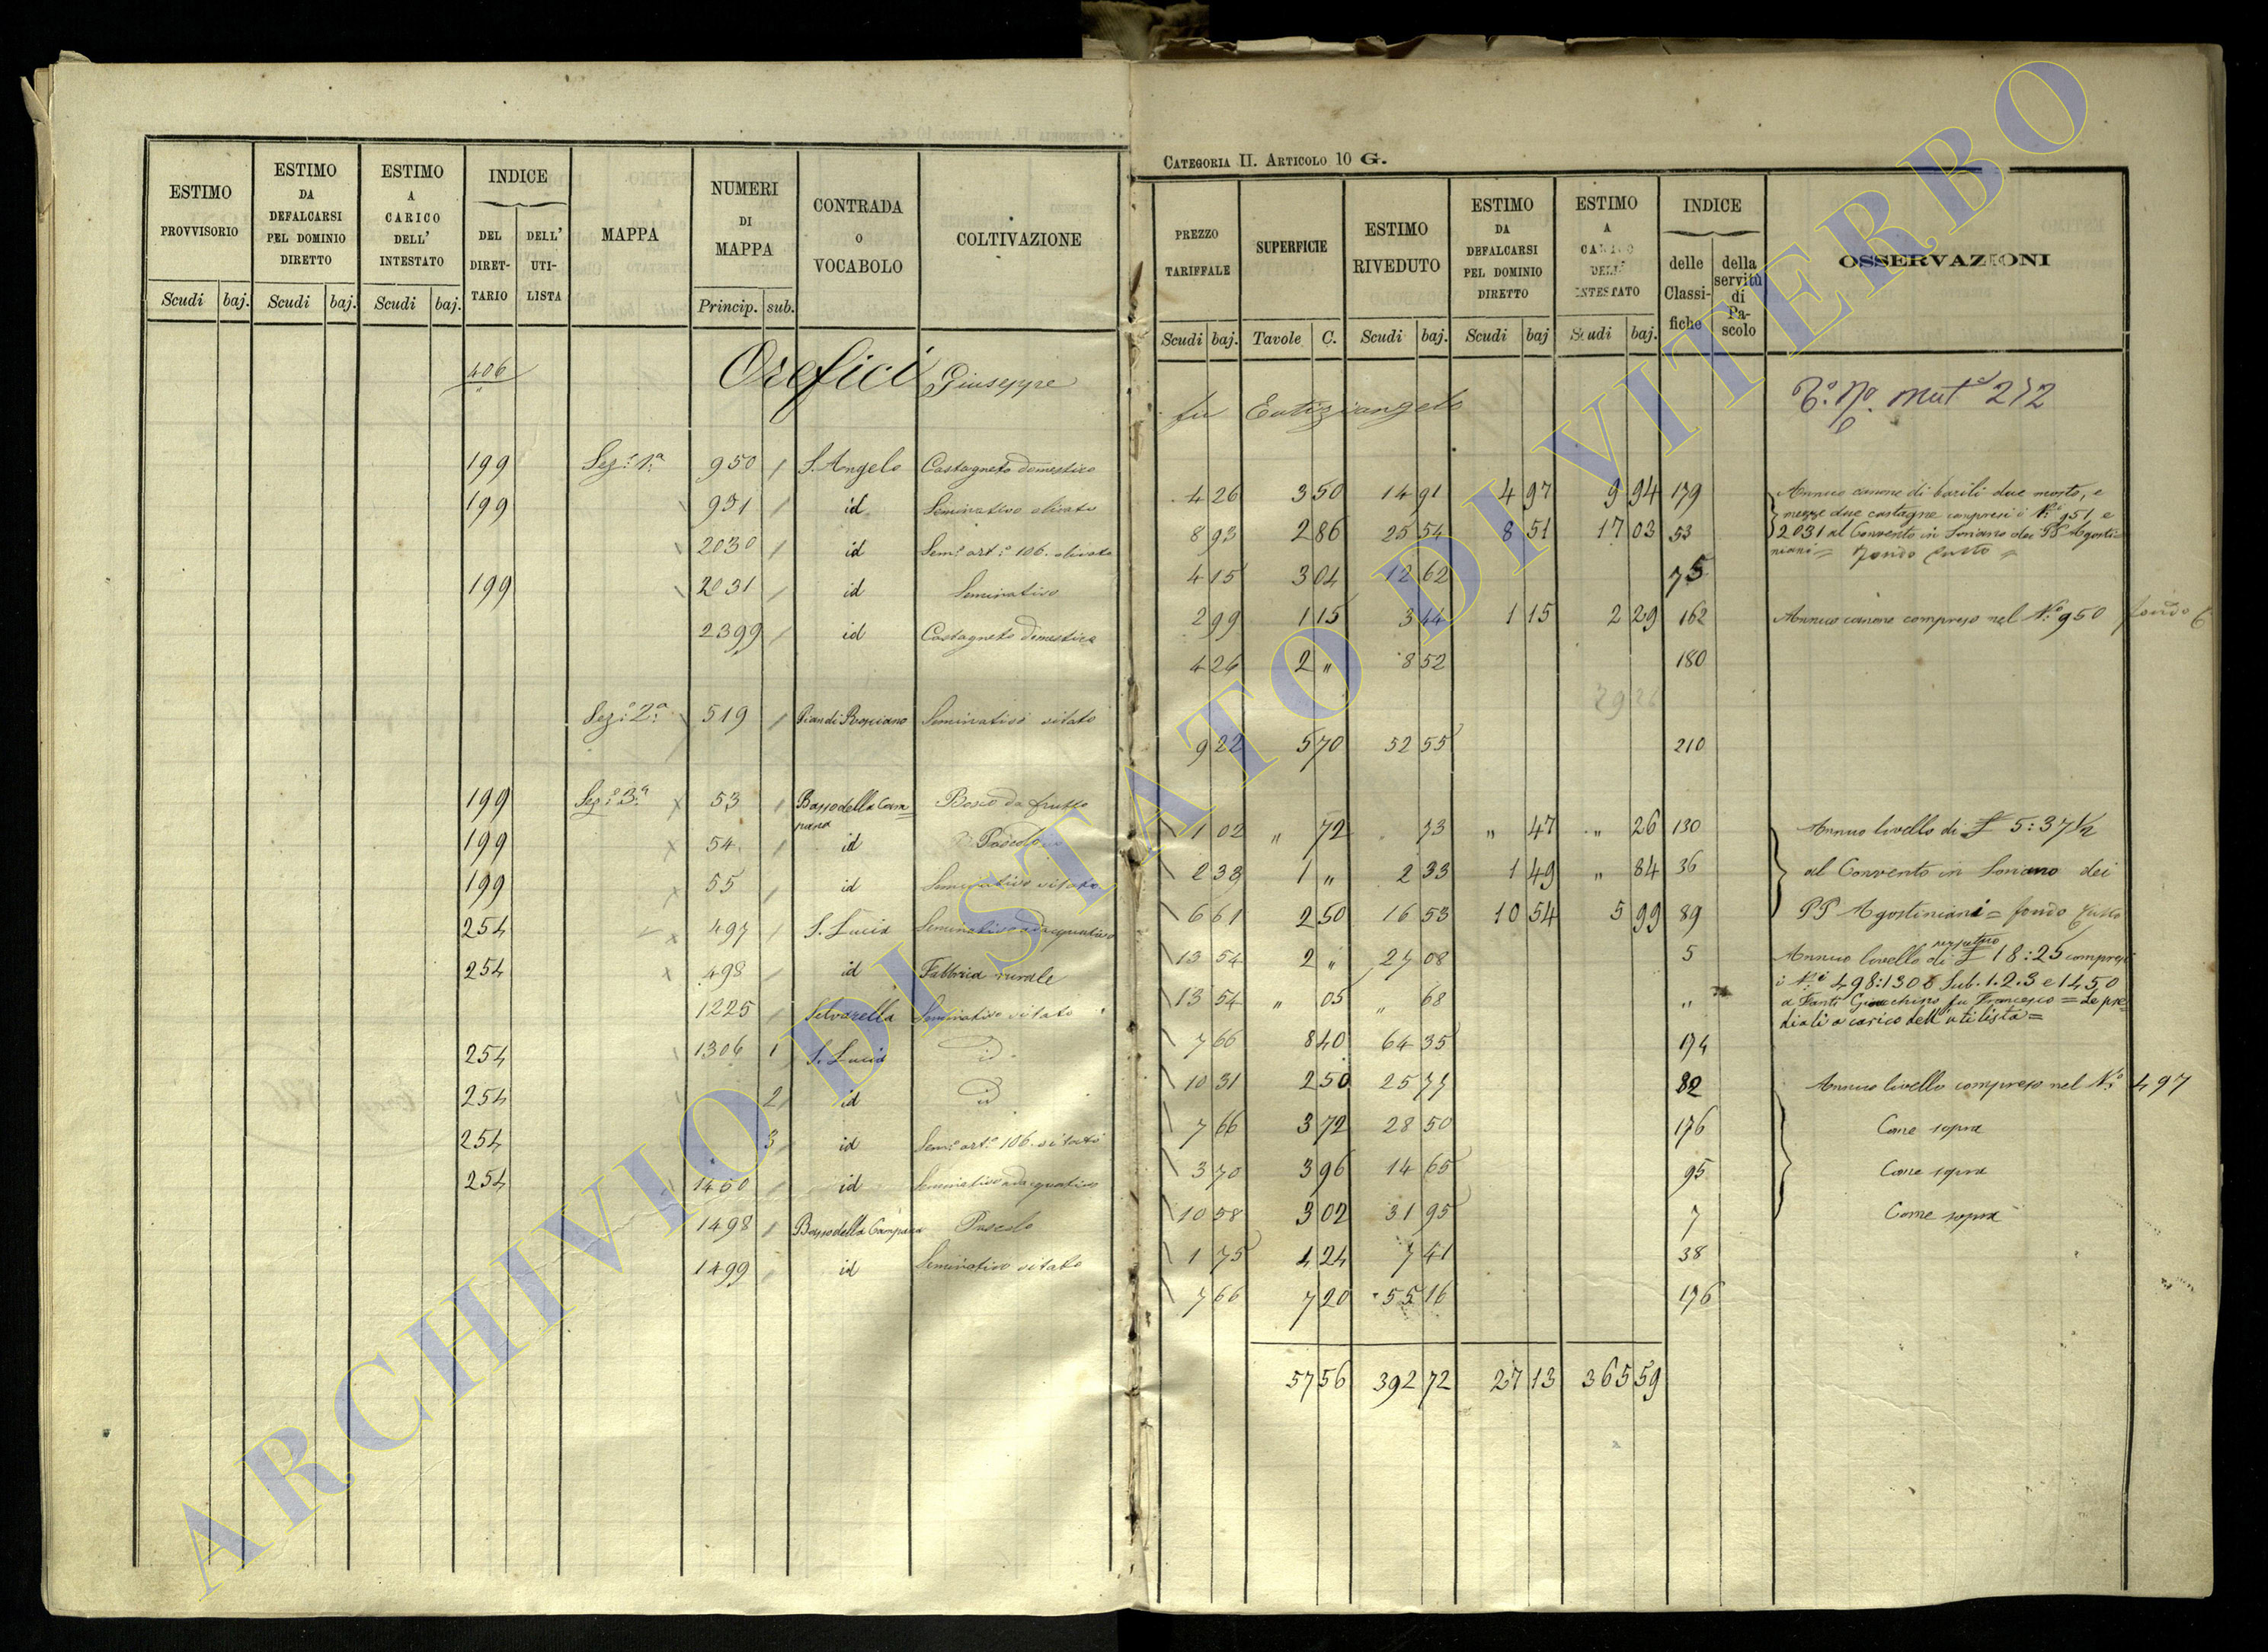 CATEGORIA II. ARTICOLO 10 G.
ESTIMO PROVVISORIO Scudi baj.
ESTIMO DA DEFALCARSI PEL DOMINIO DIRETTO Scudi baj.
ESTIMO A CARICO DELL' INTESTATO Scudi baj.
INDICE DEL DIRET-TARIO DELL' UTI-LISTA
MAPPA
NUMERI DI MAPPA Princip. sub.
CONTRADA O VOCABOLO
COLTIVAZIONE
PREZZO TARIFFALE Scudi baj.
SUPERFICIE Tavole C.
ESTIMO RIVEDUTO Scudi baj.
ESTIMO DA DEFALCARSI PEL DOMINIO DIRETTO Scudi baj
ESTIMO A CARICO DELL' INTESTATO Scudi baj.
INDICE delle Classi-fiche della servitù di Pa-scolo
OSSERVAZIONI
406 Orefici Giuseppe fu Eutiziangelo mut 272
199 Sez.e 1.a 950 S. Angelo Castagneto domestico 4 26 3 50 14 91 4 97 9 94 179 Annuo canone di barili due mosto, e
mezze due castagne compresi i N.i 951 e
199 951 id Seminativo olivato 8 93 2 86 25 54 8 51 17 03 53 2031 al Convento in Soriano dei PP Agosti-
niani = fondo
2030 id Sem.o art.o 106. olivato 4 15 3 04 12 62 75
199 2031 id Seminativo 2 99 1 15 3 44 1 15 2 29 162 Annuo canone compreso nel N.o 950 fondo
2399 id Castagneto domestico 4 26 2 " 8 52 180
Sez.e 2.a 519 Pian di Rosciano Seminativo vitato 9 22 5 70 52 55 210
199 Sez.e 3.a 53 Basso della Cam=pana Bosco da frutto 1 02 " 72 73 " 47 " 26 130 Annuo livello di £ 5:37½
199 54 id Pascolo 2 33 1 " 2 33 1 49 " 84 36 al Convento in Soriano dei
199 55 id Seminativo vitato 6 61 2 50 16 53 10 54 5 99 89 PP Agostiniani = fondo
254 497 S. Lucia Seminativo adacquativo 13 54 2 " 27 08 5 Annuo livello perpetuo di £ 18:25 compresi
i N.i 498:1306 Sub. 1.2.3 e 1450
254 498 id Fabbrica rurale 13 54 " 05 " 68 " a Fanti Giacchino fu Francesco = Le pre=
diali a carico dell'utilista =
1225 Selvarella Seminativo vitato 7 66 8 40 64 35 174
254 1306 1 S. Lucia id 10 31 2 50 25 77 82 Annuo livello compreso nel N.o 497
254 2 id id 7 66 3 72 28 50 176 Come sopra
254 3 id Sem.o art.o 106. vitato 3 70 3 96 14 65 95 Come sopra
254 1450 id Seminativo adacquativo 10 58 3 02 31 95 7 Come sopra
1498 Basso della Campana Pascolo 1 75 4 24 7 41 38
1499 id Seminativo vitato 7 66 7 20 55 16 176
57 56 392 72 27 13 365 59
ARCHIVIO DI STATO DI VITERBO